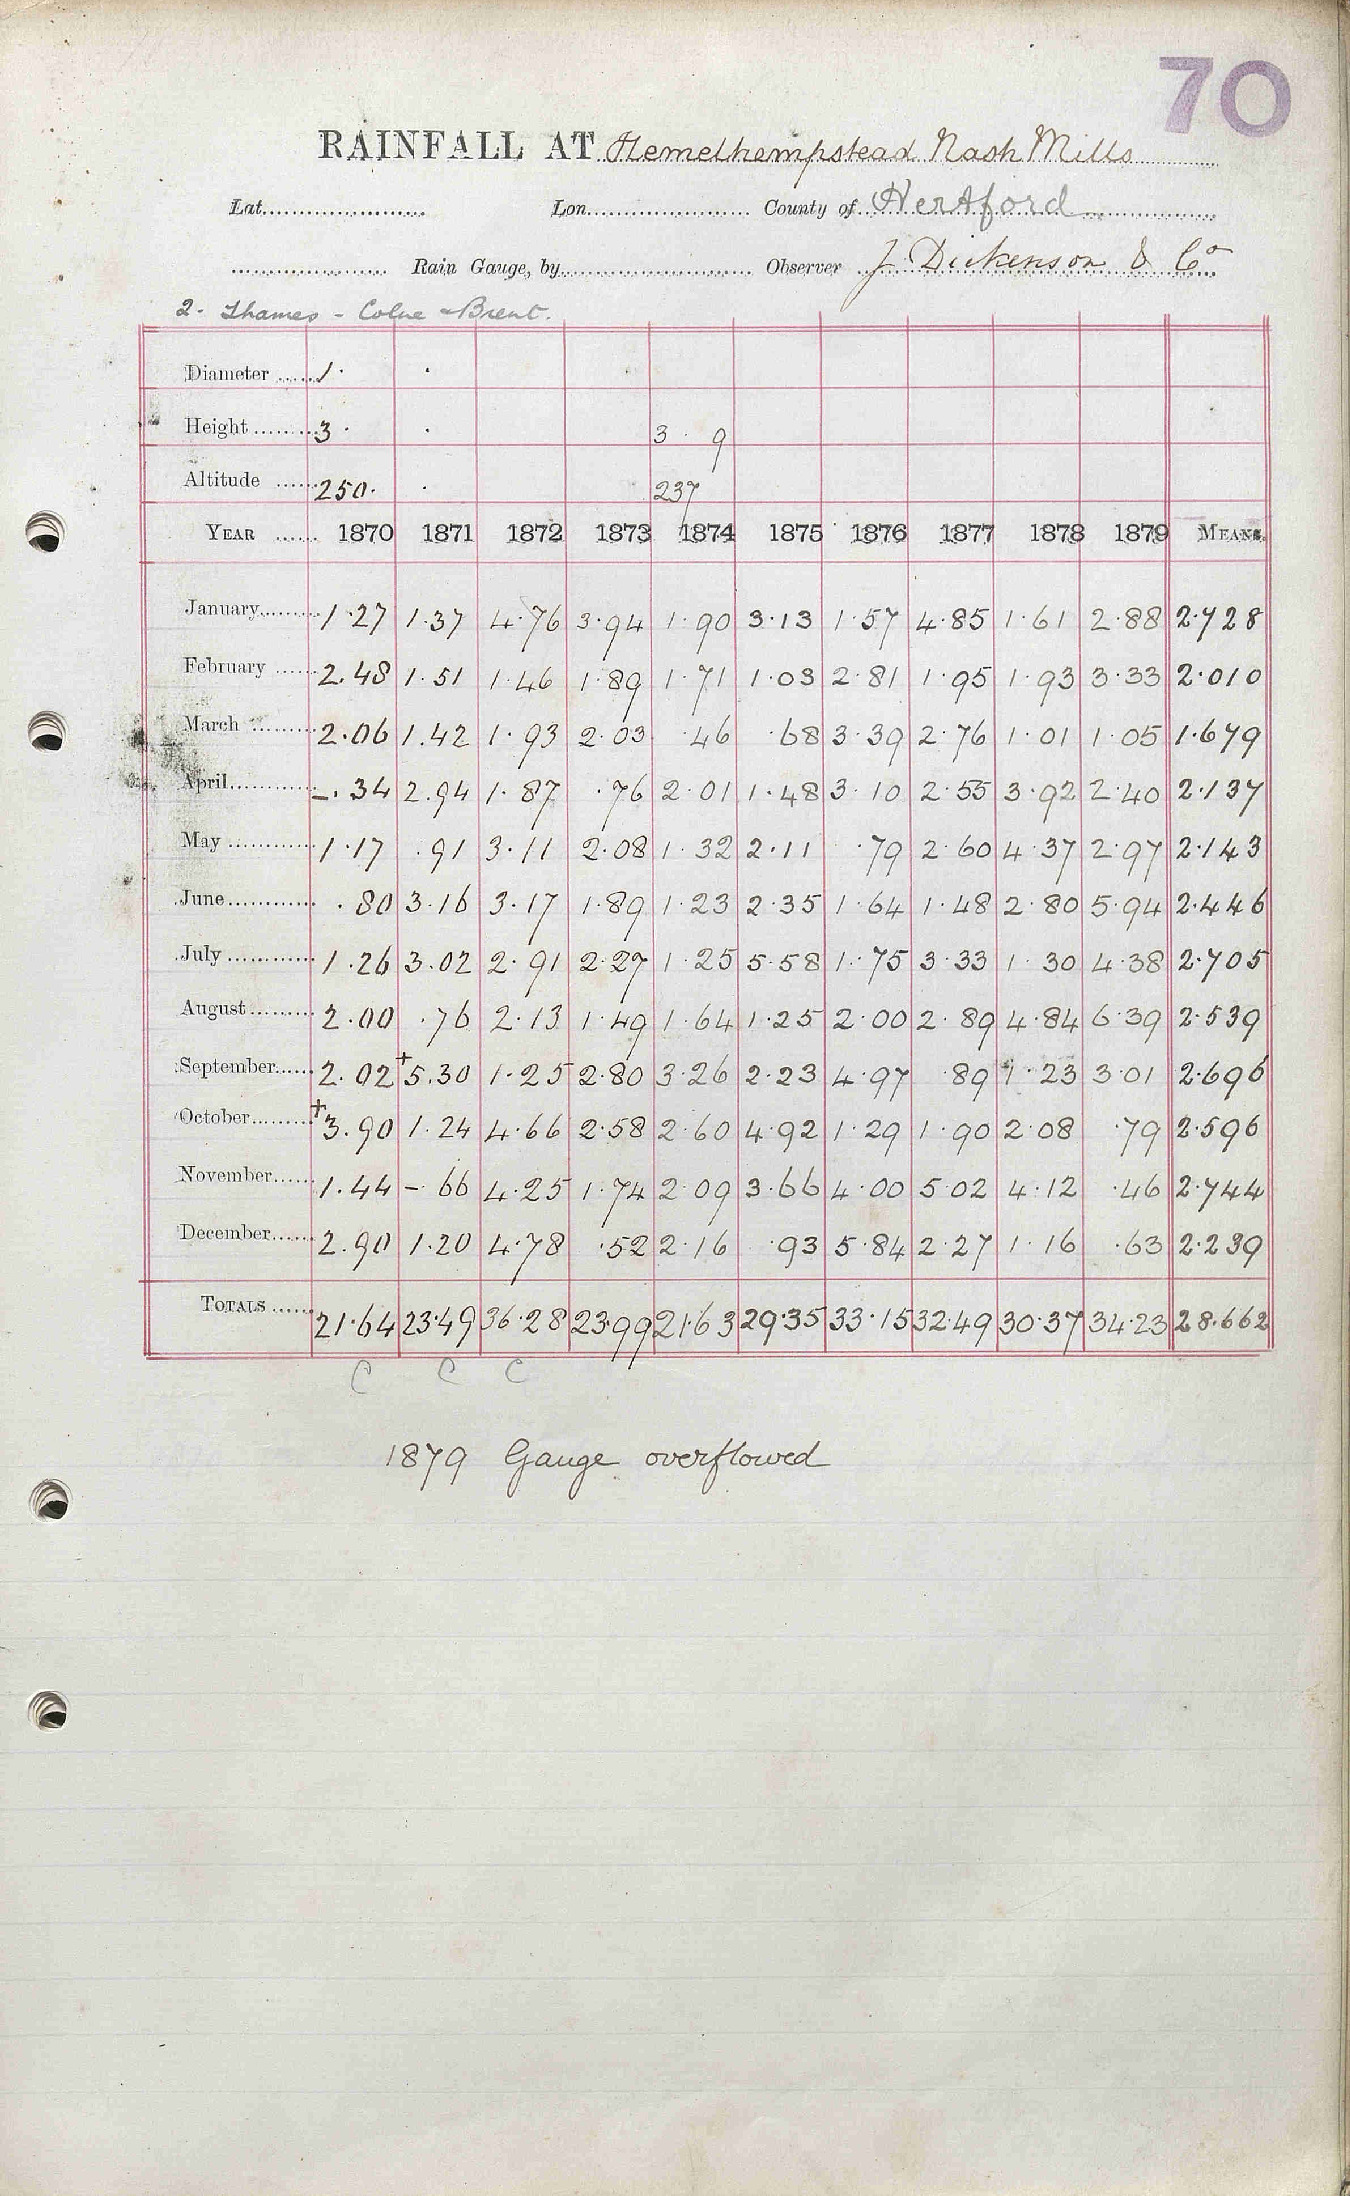 70
RAINFALL AT Hemelhempstead Nash Mills
Lat. Lon. County of Hertford
Rain Gauge, by Observer J. Dickenson & Co
2. Thames - Colne & Brent.
Diameter 1· ·
Height 3· · 3 9
Altitude 250· · 237
YEAR 1870 1871 1872 1873 1874 1875 1876 1877 1878 1879 MEANS.
January 1·27 1·37 4·76 3·94 1·90 3·13 1·57 4·85 1·61 2·88 2·728
February 2.48 1·51 1·46 1·89 1·71 1·03 2·81 1·95 1·93 3·33 2·010
March 2.06 1.42 1·93 2·03 ·46 ·68 3·39 2·76 1·01 1·05 1·679
April –·34 2.94 1·87 ·76 2·01 1·48 3·10 2·55 3·92 2·40 2·137
May 1·17 ·91 3·11 2·08 1·32 2·11 ·79 2·60 4·37 2·97 2·143
June ·80 3·16 3·17 1·89 1·23 2·35 1·64 1·48 2·80 5·94 2·446
July 1·26 3·02 2·91 2·27 1·25 5·58 1·75 3·33 1·30 4·38 2·705
August 2·00 ·76 2·13 1·49 1·64 1·25 2·00 2·89 4·84 6·39 2·539
September 2.02 +5.30 1·25 2·80 3·26 2·23 4·97 ·89 1·23 3·01 2·696
October +3.90 1·24 4·66 2·58 2·60 4·92 1·29 1·90 2·08 ·79 2·596
November 1.44 – 66 4·25 1·74 2·09 3·66 4·00 5·02 4·12 ·46 2·744
December 2.90 1·20 4·78 ·52 2·16 ·93 5·84 2·27 1·16 ·63 2·239
TOTALS 21·64 23·49 36·28 23·99 21·63 29·35 33·15 32·49 30·37 34·23 28·662
C C C
1879 Gauge overflowed